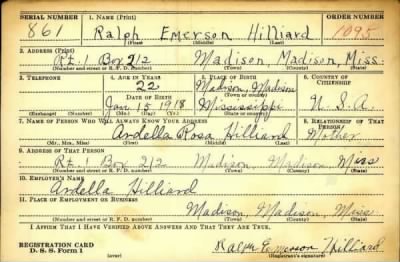 SERIAL NUMBER 1. NAME (Print) ORDER NUMBER
861 Ralph Emerson Hilliard 1095
(First) (Middle) (Last)
2. ADDRESS (Print)
Rt. 1 Box 212 Madison, Madison, Miss.
(Number and street or R. F. D. number) (Town) (County) (State)
3. TELEPHONE 4. AGE IN YEARS 5. PLACE OF BIRTH 6. COUNTRY OF CITIZENSHIP
22 Madison, Madison
DATE OF BIRTH (Town or county)
Jan. 15 1918 Mississippi U. S. A.
(Exchange) (Number) (Mo.) (Day) (Yr.) (State or country)
7. NAME OF PERSON WHO WILL ALWAYS KNOW YOUR ADDRESS 8. RELATIONSHIP OF THAT PERSON
Ardella Rosa Hilliard Mother
(Mr., Mrs., Miss) (First) (Middle) (Last)
9. ADDRESS OF THAT PERSON
Rt. 1 Box 212 Madison, Madison, Miss
(Number and street or R. F. D. number) (Town) (County) (State)
10. EMPLOYER'S NAME
Ardella Hilliard
11. PLACE OF EMPLOYMENT OR BUSINESS
Madison, Madison, Miss
(Number and street or R. F. D. number) (Town) (County) (State)
I AFFIRM THAT I HAVE VERIFIED ABOVE ANSWERS AND THAT THEY ARE TRUE.
REGISTRATION CARD Ralph Emerson Hilliard
D. S. S. Form 1 (over) (Registrant's signature)